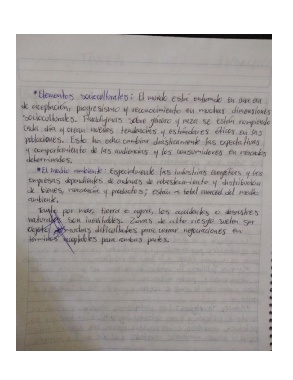 *Elementos socioculturales: El mundo está entrando en una era
de aceptación, progresismo y reconocimiento en muchas dimensiones
socioculturales. Paradigmas sobre género y raza se están rompiendo
cada día y crean nuevas tendencias y estándares éticos en las
poblaciones. Esto ha echo cambiar drasticamente las expectativas
y comportamiento de las audiencias y los consumidores en mercados
determinados.
*El medio ambiente: Especialmente las industrias energéticas y las
empresas dependientes de cadenas de abastecimiento y distribución
de bienes, y productos; están a total merced del medio
ambiente.
por mar, tierra o agua, los accidentes o desastres
naturales son inevitables. Zonas de alto riesgo suelen ser
objeto de muchas dificultades para cerrar negociaciones en
términos aceptables para ambas partes.